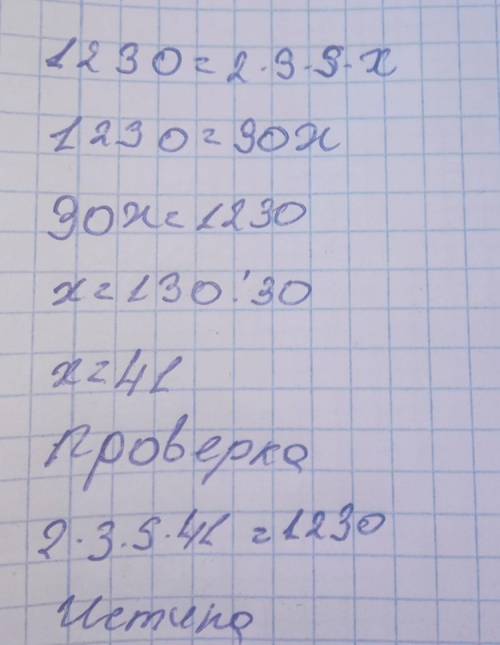 1230 = 2·3·5·x
1230 = 30x
30x = 1230
x = 130:30
x = 41
Проверка
2·3·5·41 = 1230
Истина